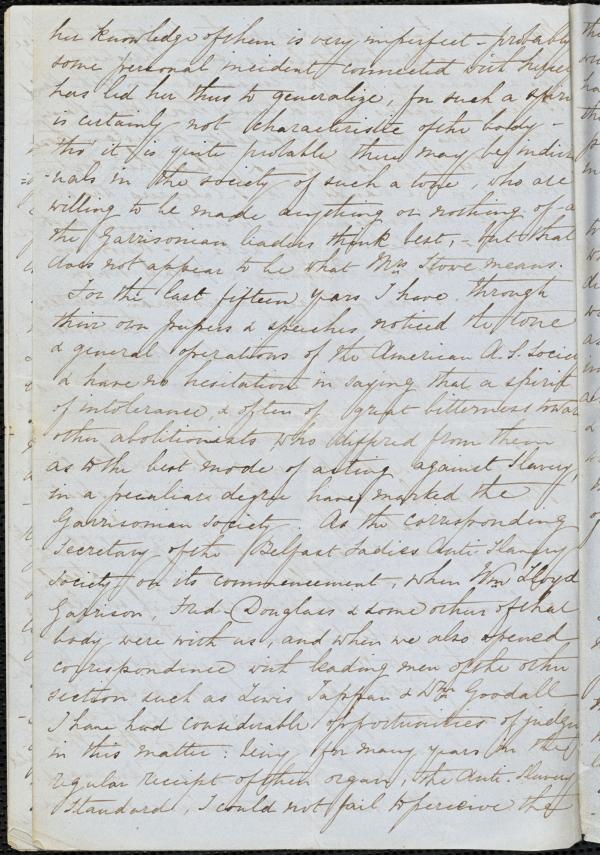 her knowledge of them is very imperfect - probably
some personal incident connected with herself
has led her thus to generalize, for such a spirit
is certainly not characteristic of the body -
tho' it is quite probable there may be indivi
-uals in the society of such a tone, who are
willing to be made anything or nothing of as
the Garrisonian leaders think best, - but that
does not appear to be what Mrs Stowe means.
For the last fifteen years I have through
their own papers & speeches noticed the tone
& general operations of the American A. S. Society
& have no hesitation in saying that a spirit
of intolerance & often of great bitterness towar
other abolitionists who differed from them
as to the best mode of acting against Slavery,
in a peculiar degree have marked the
Garrisonian Society. As the corresponding
Secretary of the Belfast Ladies Anti Slavery
Society on its commencement, when Wm Lloyd
Garrison, Fred Douglass & some others of that
body were with us, and when we also opened
correspondence with leading men of the other
section such as Lewis Tappan & Wm Goodall
I have had considerable opportunities of judgin
in this matter: being for many years in the
regular receipt of their organ, the Anti-Slavery
Standard, I could not fail to perceive the